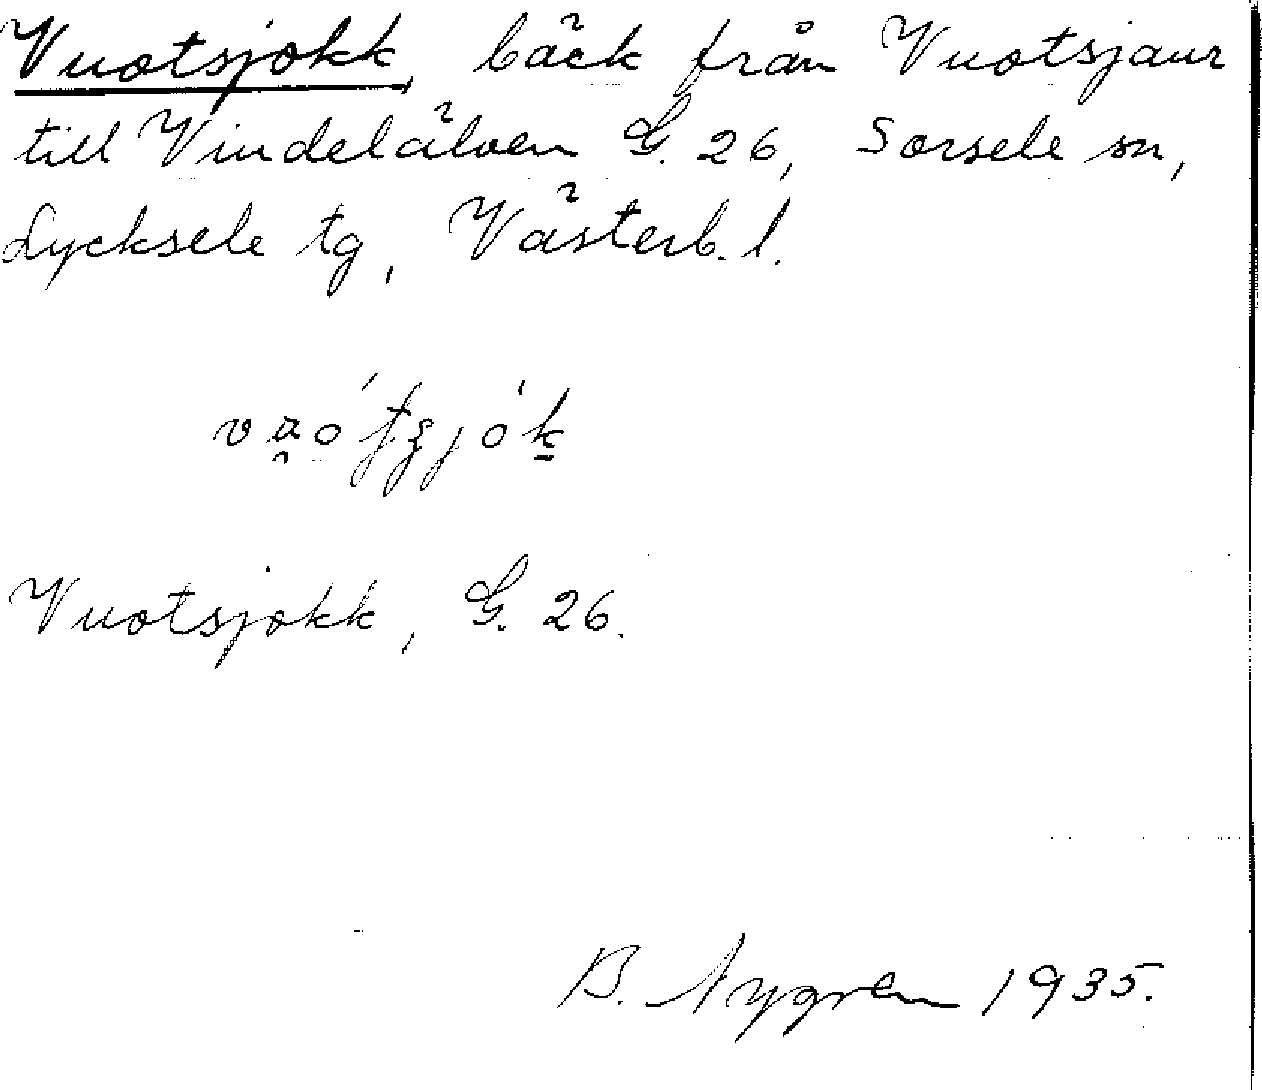 Vuotsjokk, bäck från Vuotsjaur
till Vindelälven G. 26, Sorsele sn,
Lycksele tg, Västerb. l.
Vuotsjokk, G. 26.
B. Nygren 1935.